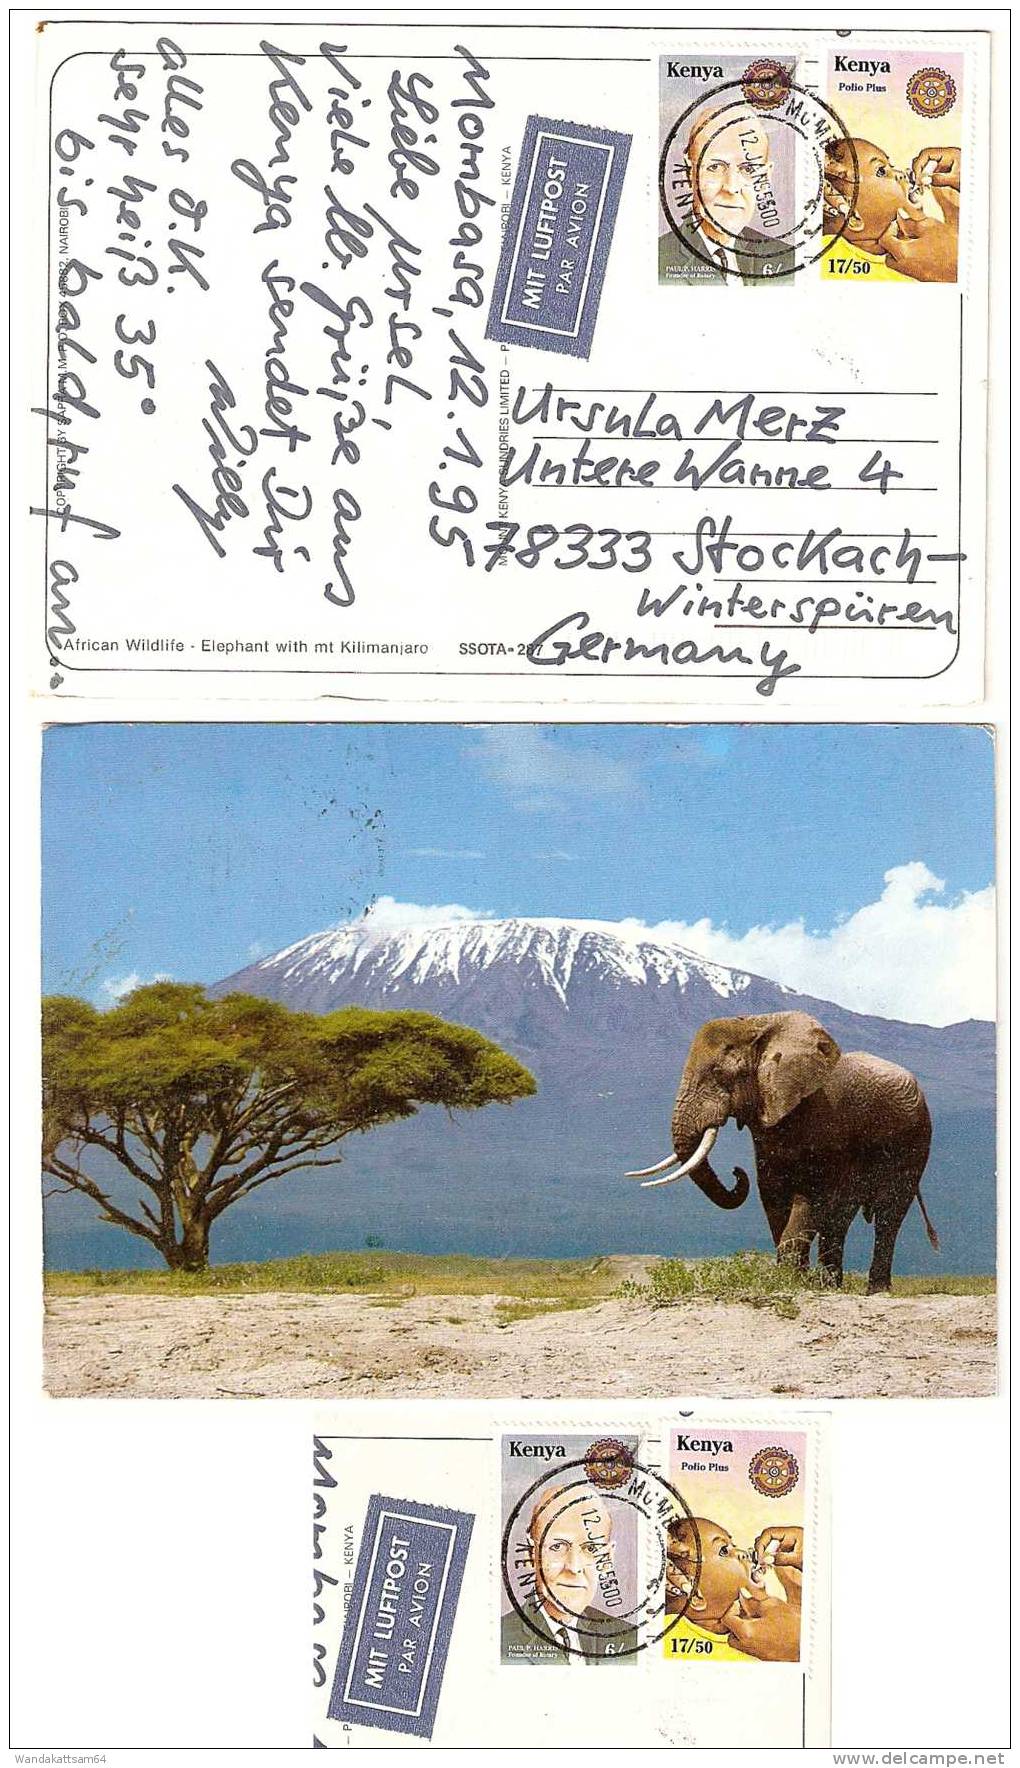 Mombasa, 12.1.95
Liebe Ursel,
viele lb. Grüße aus
Kenya sendet Dir
Willy
alles O.K.
sehr heiß 35°
bis bald auf am..
COPYRIGHT BY SAPRA P.O. BOX 45882, NAIROBI
African Wildlife - Elephant with mt Kilimanjaro SSOTA-287
MOUNT KENYA SUNDRIES LIMITED – NAIROBI – KENYA
MIT LUFTPOST
PAR AVION
Kenya
PAUL P. HARRIS
Founder of Rotary
6/-
Kenya
Polio Plus
17/50
KENYA
12. JAN 95
Ursula Merz
Untere Wanne 4
78333 Stockach-
Winterspüren
Germany
NAIROBI – KENYA
MIT LUFTPOST
PAR AVION
Kenya
PAUL P. HARRIS
Founder of Rotary
6/-
Kenya
Polio Plus
17/50
KENYA
12. JAN 95
Wandakattsam64
www.delcampe.net